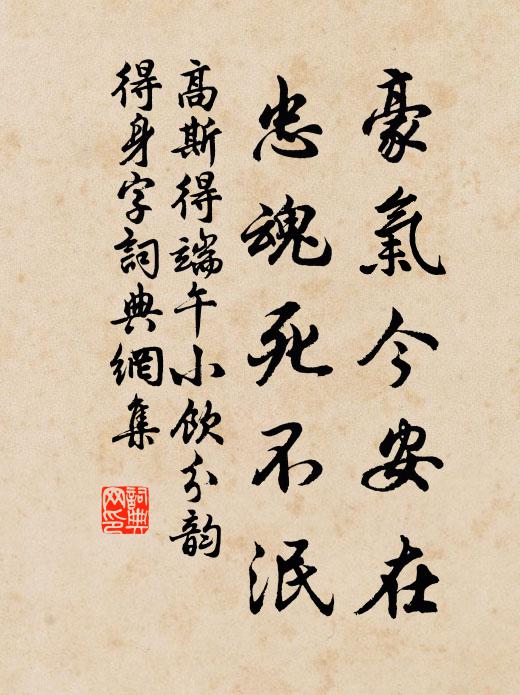 豪氣今安在
忠魂死不泯
高斯得端午小飲分韵
得身字詞典網集
詞典网印